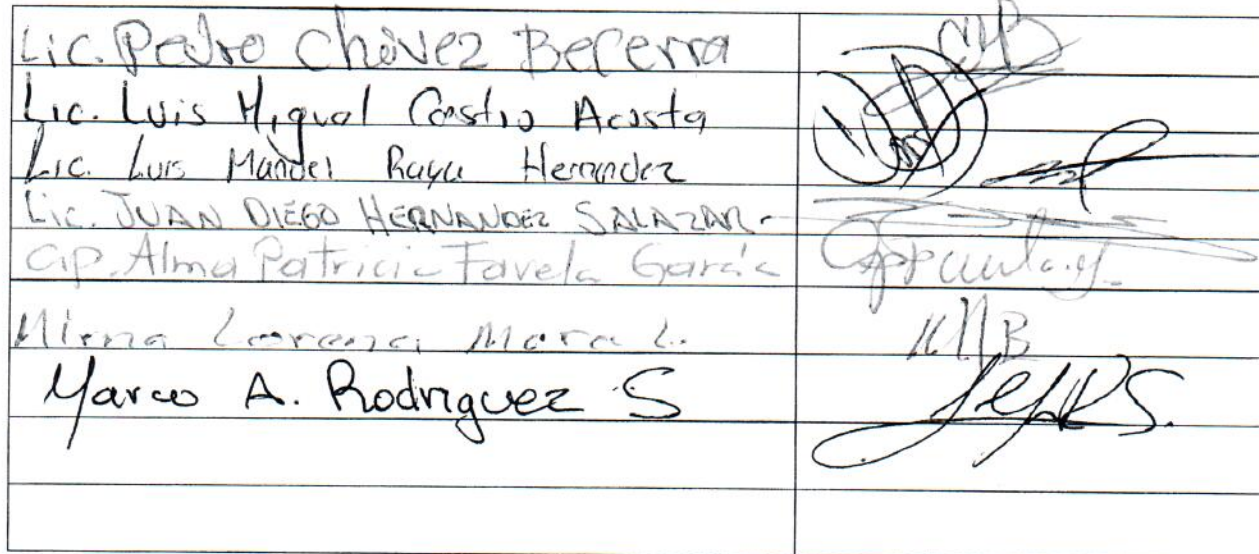 Lic. Pedro Chávez Becerra
Lic. Luis Miguel Castro Acosta
Lic. Luis Manuel Raya Hernandez
Lic. JUAN DIEGO HERNANDEZ SALAZAR
C.P. Alma Patricia Favela García
Mirna Lorena Mora L.
Marco A. Rodriguez S